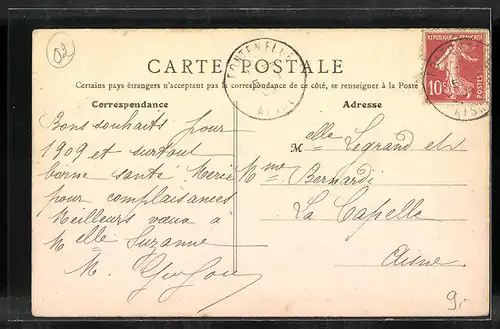 02
FONTENELLE
AISNE
CARTE POSTALE
Certains pays étrangers n'acceptant pas la correspondance de ce côté, se renseigner à la Poste
REPUBLIQUE FRANÇAISE
10c
POSTES
Correspondance
Adresse
Bons souhaits pour
1909 et surtout
bonne santé. Merci
pour complaisances
Meilleurs vœux à
Melle Suzanne
M.
Melle Legrand et
Mme Bernardi
La Capelle
Aisne
9.-